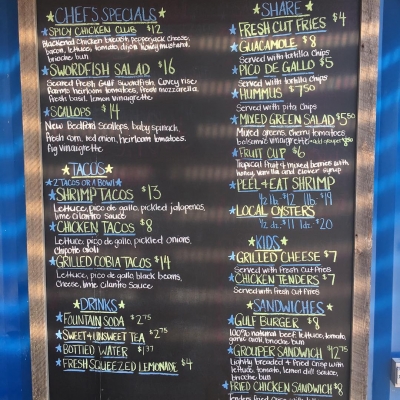 CHEF'S SPECIALS
SPICY CHICKEN CLUB $12
Blackened Chicken breast, pepperjack cheese,
bacon, lettuce, tomato, dijon honey mustard,
brioche bun
SWORDFISH SALAD $16
Seared Fresh Gulf Swordfish,
heirloom tomatoes, fresh mozzarella,
fresh basil, lemon vinaigrette
SCALLOPS $14
New Bedford Scallops, baby spinach,
fresh corn, red onion, heirloom tomatoes,
Fig Vinaigrette
TACOS
2 TACOS OR A BOWL
SHRIMP TACOS $13
Lettuce, pico de gallo, pickled jalapenos,
lime cilantro sauce
CHICKEN TACOS $8
Lettuce, pico de gallo, pickled onions,
Chipotle aioli
GRILLED COBIA TACOS $14
Lettuce, pico de gallo, black beans,
Cheese, lime cilantro Sauce
DRINKS
FOUNTAIN SODA $2.75
SWEET + UNSWEET TEA $2.75
BOTTLED WATER $1.37
FRESH SQUEEZED LEMONADE $4
SHARE
FRESH CUT FRIES $4
GUACAMOLE $8
Served with tortilla Chips
PICO DE GALLO $5
Served with tortilla chips
HUMMUS $7.50
Served with pita Chips
MIXED GREEN SALAD $5.50
Mixed greens, cherry tomatoes,
balsamic vinaigrette
FRUIT CUP $6
Tropical fruit + mixed berries with
honey, vanilla and clover syrup
PEEL + EAT SHRIMP
1/2 lb. $12 1lb. $19
LOCAL OYSTERS
1/2 dz. $11 1dz. $20
KIDS
GRILLED CHEESE $7
Served with Fresh Cut Fries
CHICKEN TENDERS $7
Served with Fresh Cut Fries
SANDWICHES
GULF BURGER $8
100% natural beef, lettuce, tomato,
garlic aioli, brioche bun
GROUPER SANDWICH $12.75
Lightly breaded + fried crisp with
lettuce, tomato, lemon dill sauce,
brioche bun
FRIED CHICKEN SANDWICH $8